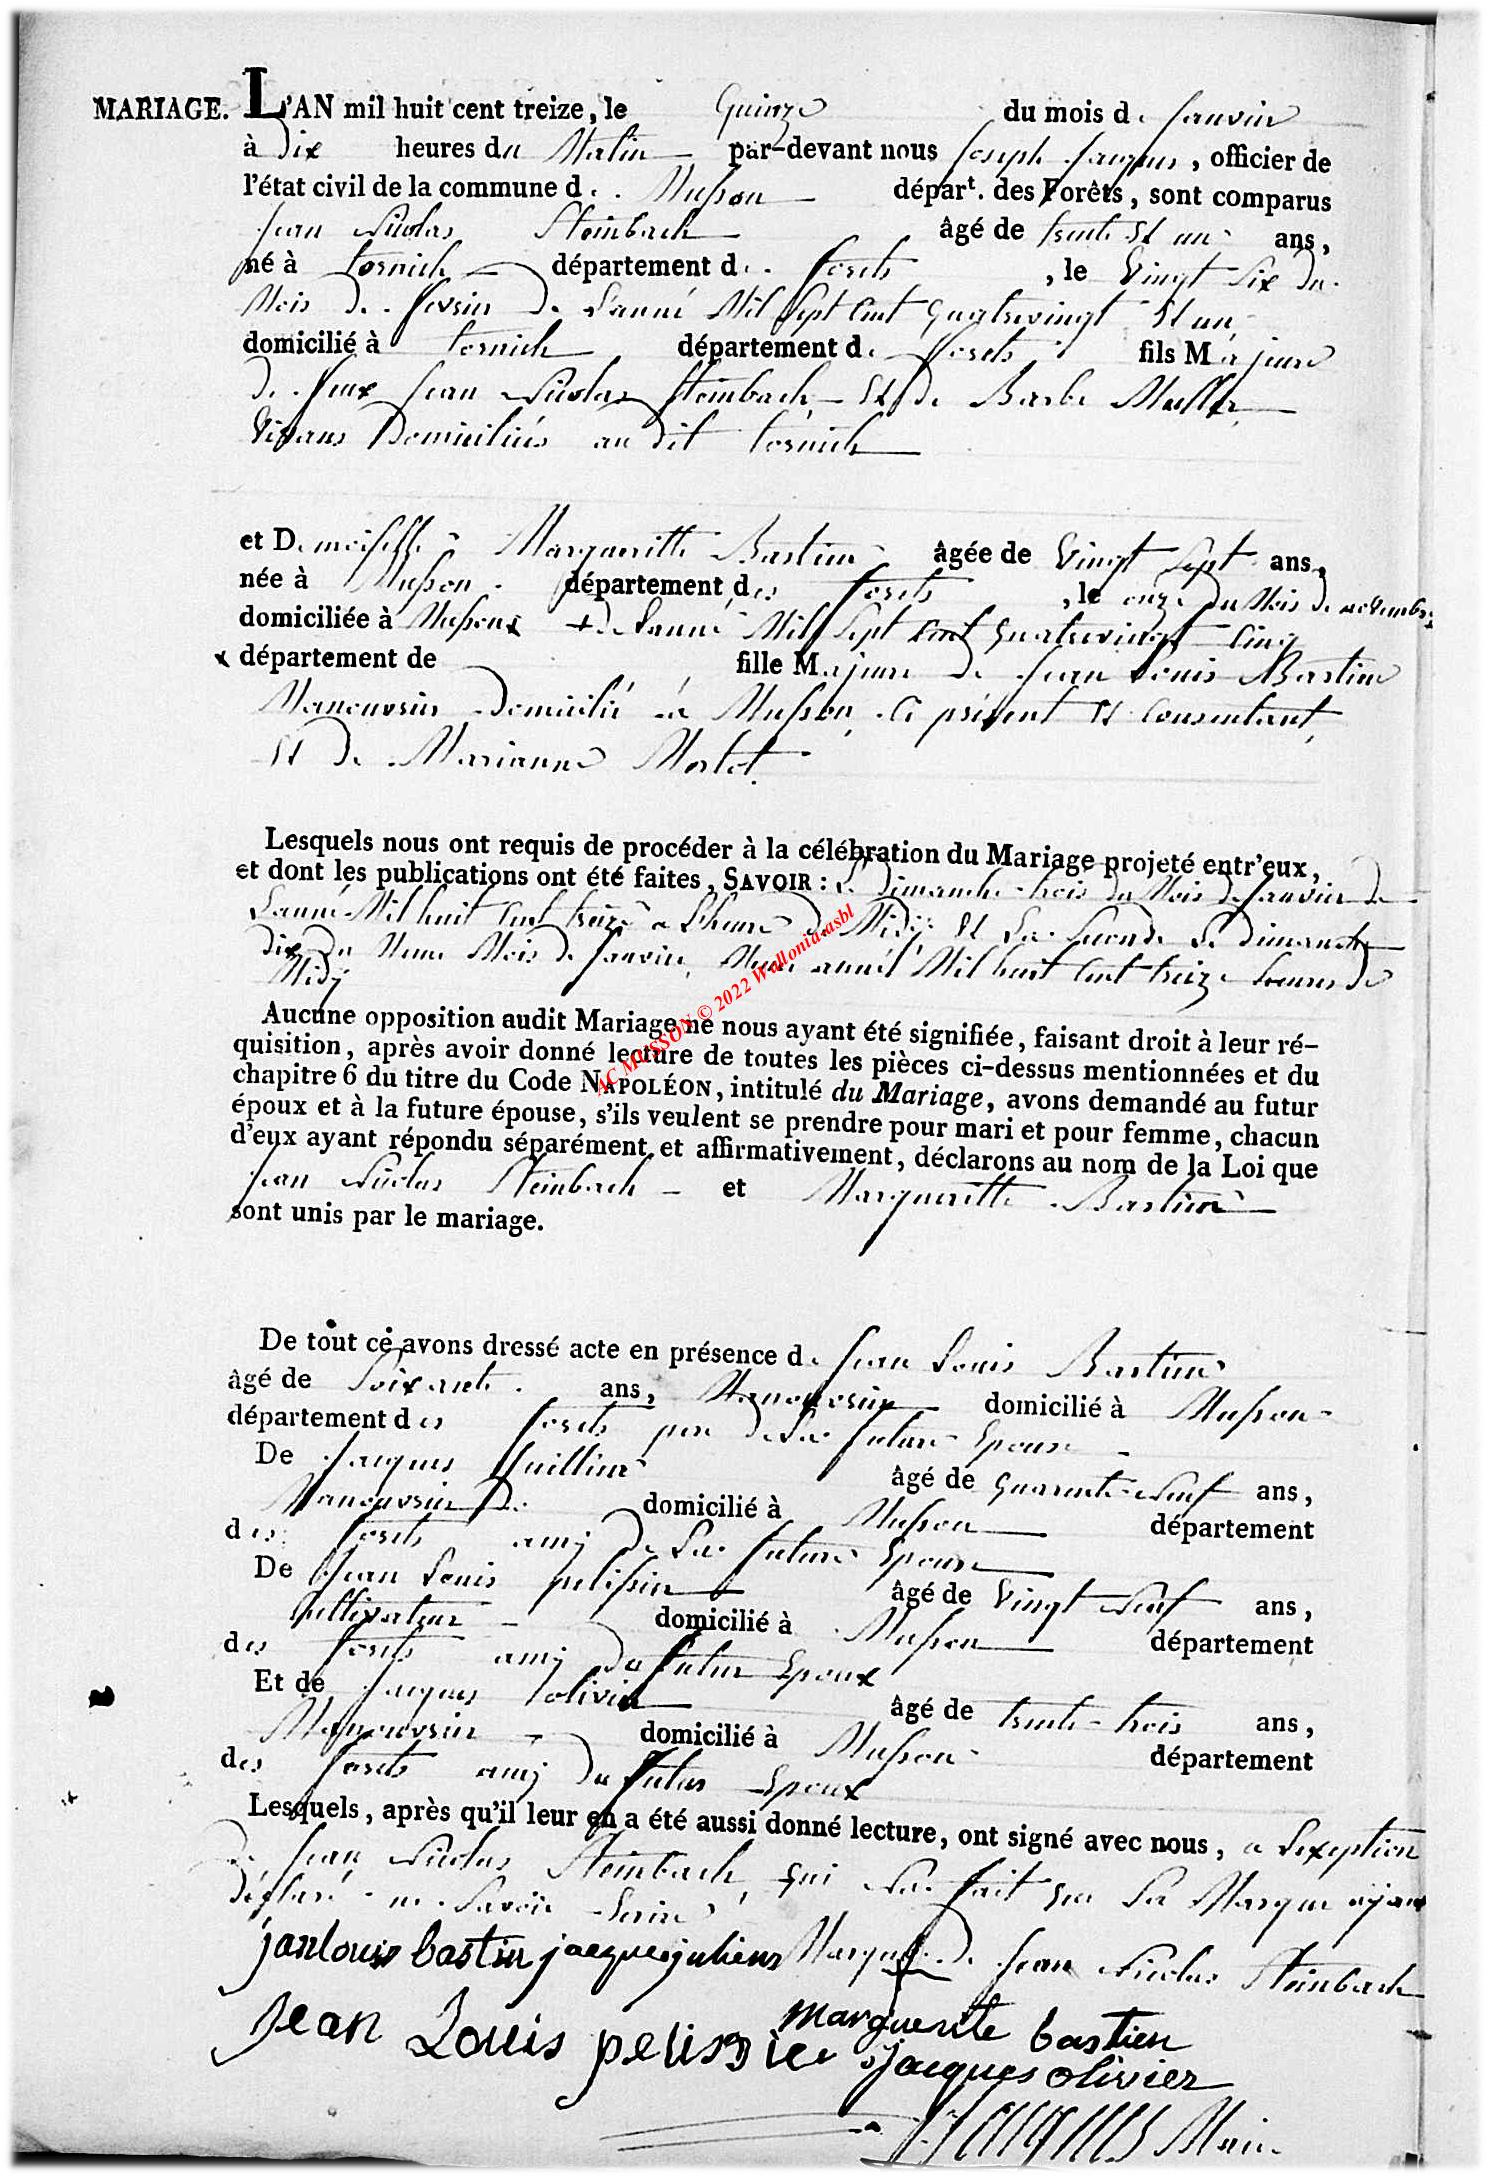 MARIAGE. L'AN mil huit cent treize, le Quinze du mois de Janvier
à Dix heures du Matin par-devant nous Joseph Jacques, officier de
l'état civil de la commune de Musson départ. des Forêts, sont comparus
Jean Nicolas Steinbach âgé de trente Et un ans,
né à tornich département de forets, le Vingt Six du
Mois de fevrier de L'année Mil Sept Cent Quatrevingt Et un
domicilié à tornich département de forets fils Majeure
de feux Jean Nicolas Steinbach Et de Barbe Muller
Vivans Domiciliés au dit tornich
et Demoiselle Margueritte Bastien âgée de Vingt Sept ans,
née à Musson département des forets, le onze du Mois de novembre
domiciliée à Musson x + de Lanné Mil Sept Cent Quatrevingt Cinq
x département de fille Majeure de Jean Louis Bastien
Manouvrier Domicilié à Musson, Ci présent Et Consentant,
Et de Marianne Mortet.
Lesquels nous ont requis de procéder à la célébration du Mariage projeté entr'eux,
et dont les publications ont été faites, SAVOIR : Le Dimanche trois du Mois de Janvier de
Lanné Mil huit Cent treize a L'heure de Midi; Et La Seconde Le dimanche
dix du Meme Mois de Janvier, Meme année Mil huit Cent treize heures de
Midy
Aucune opposition audit Mariage ne nous ayant été signifiée, faisant droit à leur ré-
quisition, après avoir donné lecture de toutes les pièces ci-dessus mentionnées et du
chapitre 6 du titre du Code NAPOLÉON, intitulé du Mariage, avons demandé au futur
époux et à la future épouse, s'ils veulent se prendre pour mari et pour femme, chacun
d'eux ayant répondu séparément et affirmativement, déclarons au nom de la Loi que
Jean Nicolas Steinbach et Margueritte Bastien
sont unis par le mariage.
AC MUSSON © 2022 Wallonia.asbl
De tout ce avons dressé acte en présence de Jean Louis Bastien
âgé de Soixante ans, Manouvrier domicilié à Musson
département des forets pere de La future Epouse
De Jacques Juillien âgé de Quarente neuf ans,
Manouvrier domicilié à Musson département
des forets amj de La future Epouse
De Jean Louis pelissier âgé de Vingt neuf ans,
Cultivateur domicilié à Musson département
des forets amj du futur Epoux
Et de Jacques olivier âgé de trente trois ans,
Manouvrier domicilié à Musson département
des forets amj du futur Epoux
Lesquels, après qu'il leur en a été aussi donné lecture, ont signé avec nous, a L'exeption
De Jean Nicolas Steinbach, qui La fait que Sa Marque ayant
déclaré ne Savoir Ecrire
janlouis bastin jacque juliens Marque de Jean Nicolas Steinbach
marguerite bastien
Jean Louis pelissier jacques olivier
J Jacques Maire